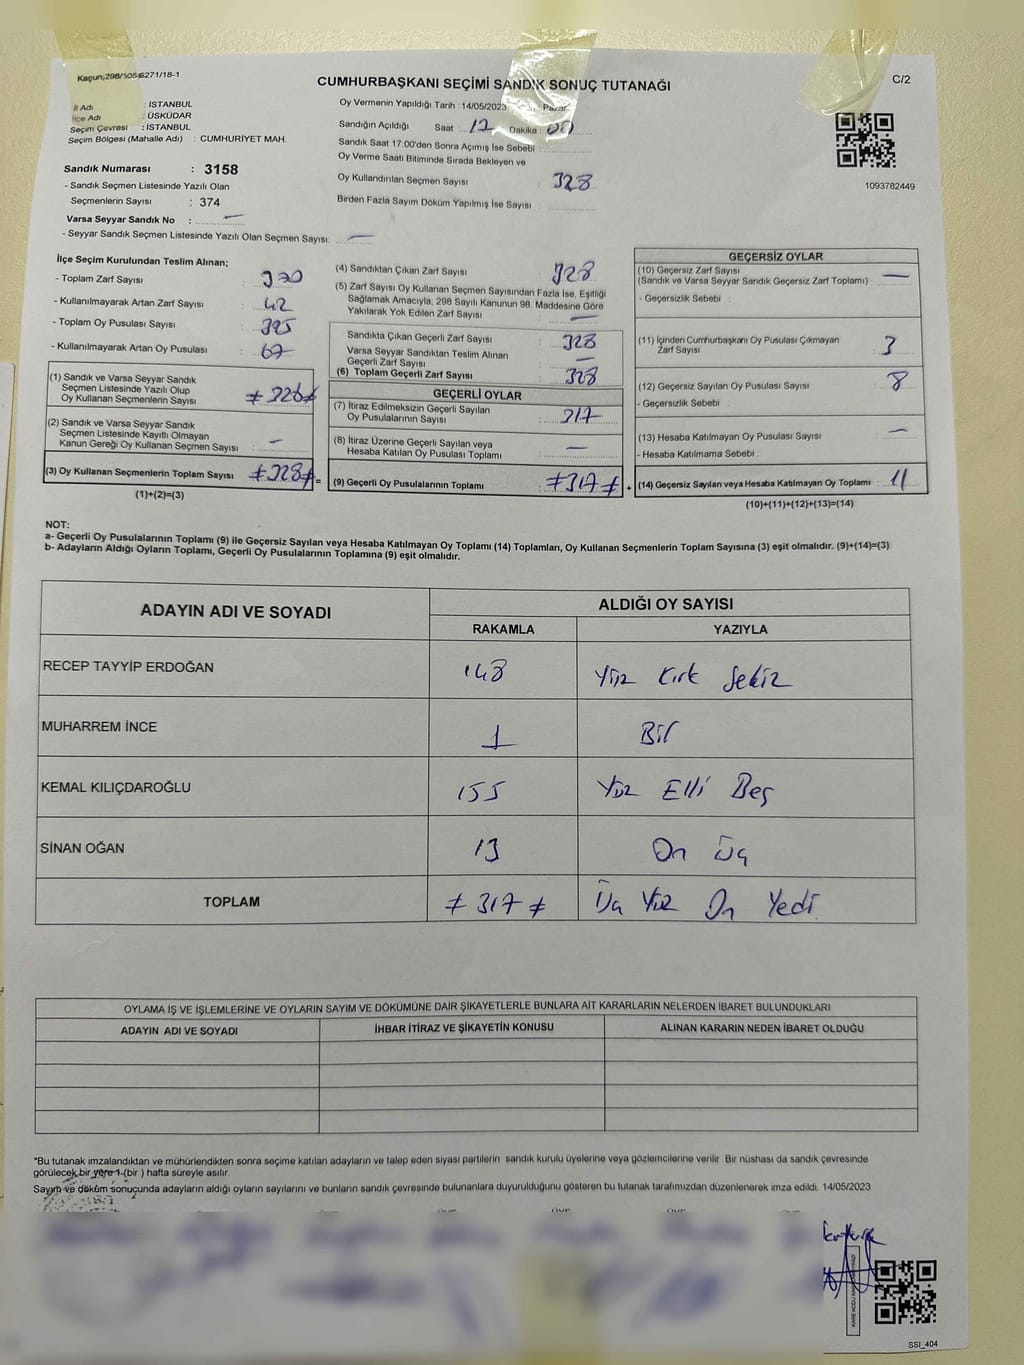 Kaçun,298/105,6271/18-1
CUMHURBAŞKANI SEÇİMİ SANDIK SONUÇ TUTANAĞI
C/2
İl Adı : İSTANBUL
İlçe Adı : ÜSKÜDAR
Seçim Çevresi : İSTANBUL
Seçim Bölgesi (Mahalle Adı) : CUMHURİYET MAH.
Sandık Numarası : 3158
- Sandık Seçmen Listesinde Yazılı Olan
Seçmenlerin Sayısı : 374
Varsa Seyyar Sandık No : —
- Seyyar Sandık Seçmen Listesinde Yazılı Olan Seçmen Sayısı: —
Oy Vermenin Yapıldığı Tarih : 14/05/2023 Pazar
Sandığın Açıldığı Saat : 17 Dakika 00
Sandık Saat 17:00'den Sonra Açımış İse Sebebi :
Oy Verme Saati Bitiminde Sırada Bekleyen ve
Oy Kullandırılan Seçmen Sayısı : 328
Birden Fazla Sayım Döküm Yapılmış İse Sayısı :
1093782449
İlçe Seçim Kurulundan Teslim Alınan;
- Toplam Zarf Sayısı :
- Kullanılmayarak Artan Zarf Sayısı : 42
- Toplam Oy Pusulası Sayısı : 395
- Kullanılmayarak Artan Oy Pusulası : 67
(1) Sandık ve Varsa Seyyar Sandık
Seçmen Listesinde Yazılı Olup
Oy Kullanan Seçmenlerin Sayısı :
(2) Sandık ve Varsa Seyyar Sandık
Seçmen Listesinde Kayıtlı Olmayan
Kanun Gereği Oy Kullanan Seçmen Sayısı : —
(3) Oy Kullanan Seçmenlerin Toplam Sayısı : ≠328≠ =
(1)+(2)=(3)
(4) Sandıktan Çıkan Zarf Sayısı : 328
(5) Zarf Sayısı Oy Kullanan Seçmen Sayısından Fazla İse, Eşitliği
Sağlamak Amacıyla, 298 Sayılı Kanunun 98. Maddesine Göre
Yakılarak Yok Edilen Zarf Sayısı : —
Sandıkta Çıkan Geçerli Zarf Sayısı : 328
Varsa Seyyar Sandıktan Teslim Alınan
Geçerli Zarf Sayısı : —
(6) Toplam Geçerli Zarf Sayısı : 328
GEÇERLİ OYLAR
(7) İtiraz Edilmeksizin Geçerli Sayılan
Oy Pusulalarının Sayısı : 317
(8) İtiraz Üzerine Geçerli Sayılan veya
Hesaba Katılan Oy Pusulası Toplamı : —
(9) Geçerli Oy Pusulalarının Toplamı : ≠317≠ +
GEÇERSİZ OYLAR
(10) Geçersiz Zarf Sayısı
(Sandık ve Varsa Seyyar Sandık Geçersiz Zarf Toplamı) : —
- Geçersizlik Sebebi :
(11) İçinden Cumhurbaşkanı Oy Pusulası Çıkmayan
Zarf Sayısı : 3
(12) Geçersiz Sayılan Oy Pusulası Sayısı : 8
- Geçersizlik Sebebi :
(13) Hesaba Katılmayan Oy Pusulası Sayısı : —
- Hesaba Katılmama Sebebi :
(14) Geçersiz Sayılan veya Hesaba Katılmayan Oy Toplamı : 11
(10)+(11)+(12)+(13)=(14)
NOT:
a- Geçerli Oy Pusulalarının Toplamı (9) ile Geçersiz Sayılan veya Hesaba Katılmayan Oy Toplamı (14) Toplamları, Oy Kullanan Seçmenlerin Toplam Sayısına (3) eşit olmalıdır. (9)+(14)=(3)
b- Adayların Aldığı Oyların Toplamı, Geçerli Oy Pusulalarının Toplamına (9) eşit olmalıdır.
ADAYIN ADI VE SOYADI
ALDIĞI OY SAYISI
RAKAMLA YAZIYLA
RECEP TAYYİP ERDOĞAN 148 Yüz Kırk Sekiz
MUHARREM İNCE 1 Bir
KEMAL KILIÇDAROĞLU 155 Yüz Elli Beş
SİNAN OĞAN 13 On Üç
TOPLAM ≠ 317 ≠ Üç Yüz On Yedi
OYLAMA İŞ VE İŞLEMLERİNE VE OYLARIN SAYIM VE DÖKÜMÜNE DAİR ŞİKAYETLERLE BUNLARA AİT KARARLARIN NELERDEN İBARET BULUNDUKLARI
ADAYIN ADI VE SOYADI İHBAR İTİRAZ VE ŞİKAYETİN KONUSU ALINAN KARARIN NEDEN İBARET OLDUĞU
*Bu tutanak imzalandıktan ve mühürlendikten sonra seçime katılan adayların ve talep eden siyasi partilerin sandık kurulu üyelerine veya gözlemcilerine verilir. Bir nüshası da sandık çevresinde
görülecek bir yere 1 (bir ) hafta süreyle asılır.
Sayım ve döküm sonuçunda adayların aldığı oyların sayılarını ve bunların sandık çevresinde bulunanlara duyurulduğunu gösteren bu tutanak tarafımızdan düzenlenerek imza edildi. 14/05/2023
SSI_404